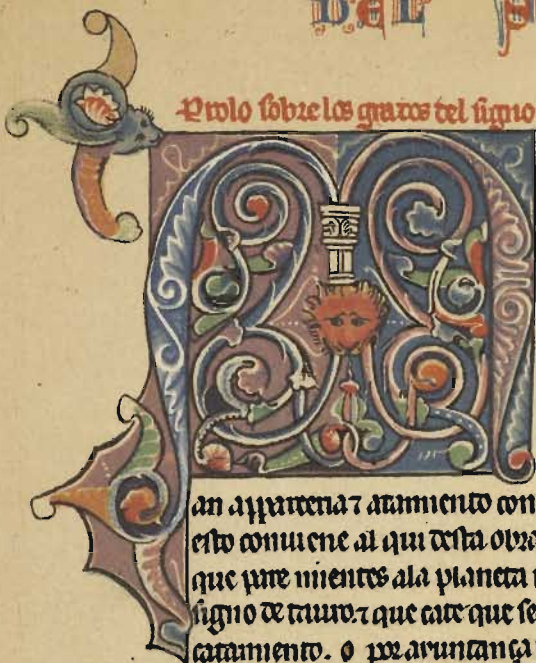 DEL
Prolo sobre los grados del signo
an apparceria ⁊ atamiento con
esto conuiene al qui desta obra
que pare mientes ala planeta
signo de tauro. ⁊ que cate que se
catamiento. o por aiuntança